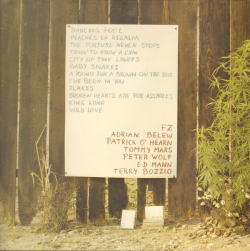 DANCING FOOL
PEACHES EN REGALIA
THE TORTURE NEVER STOPS
TRYIN' TO GROW A CHIN
CITY OF TINY LIGHTS
BABY SNAKES
A POUND FOR A BROWN ON THE BUS
I'VE BEEN IN YOU
FLAKES
BROKEN HEARTS ARE FOR ASSHOLES
KING KONG
WILD LOVE
FZ
ADRIAN BELEW
PATRICK O'HEARN
TOMMY MARS
PETER WOLF
ED MANN
TERRY BOZZIO